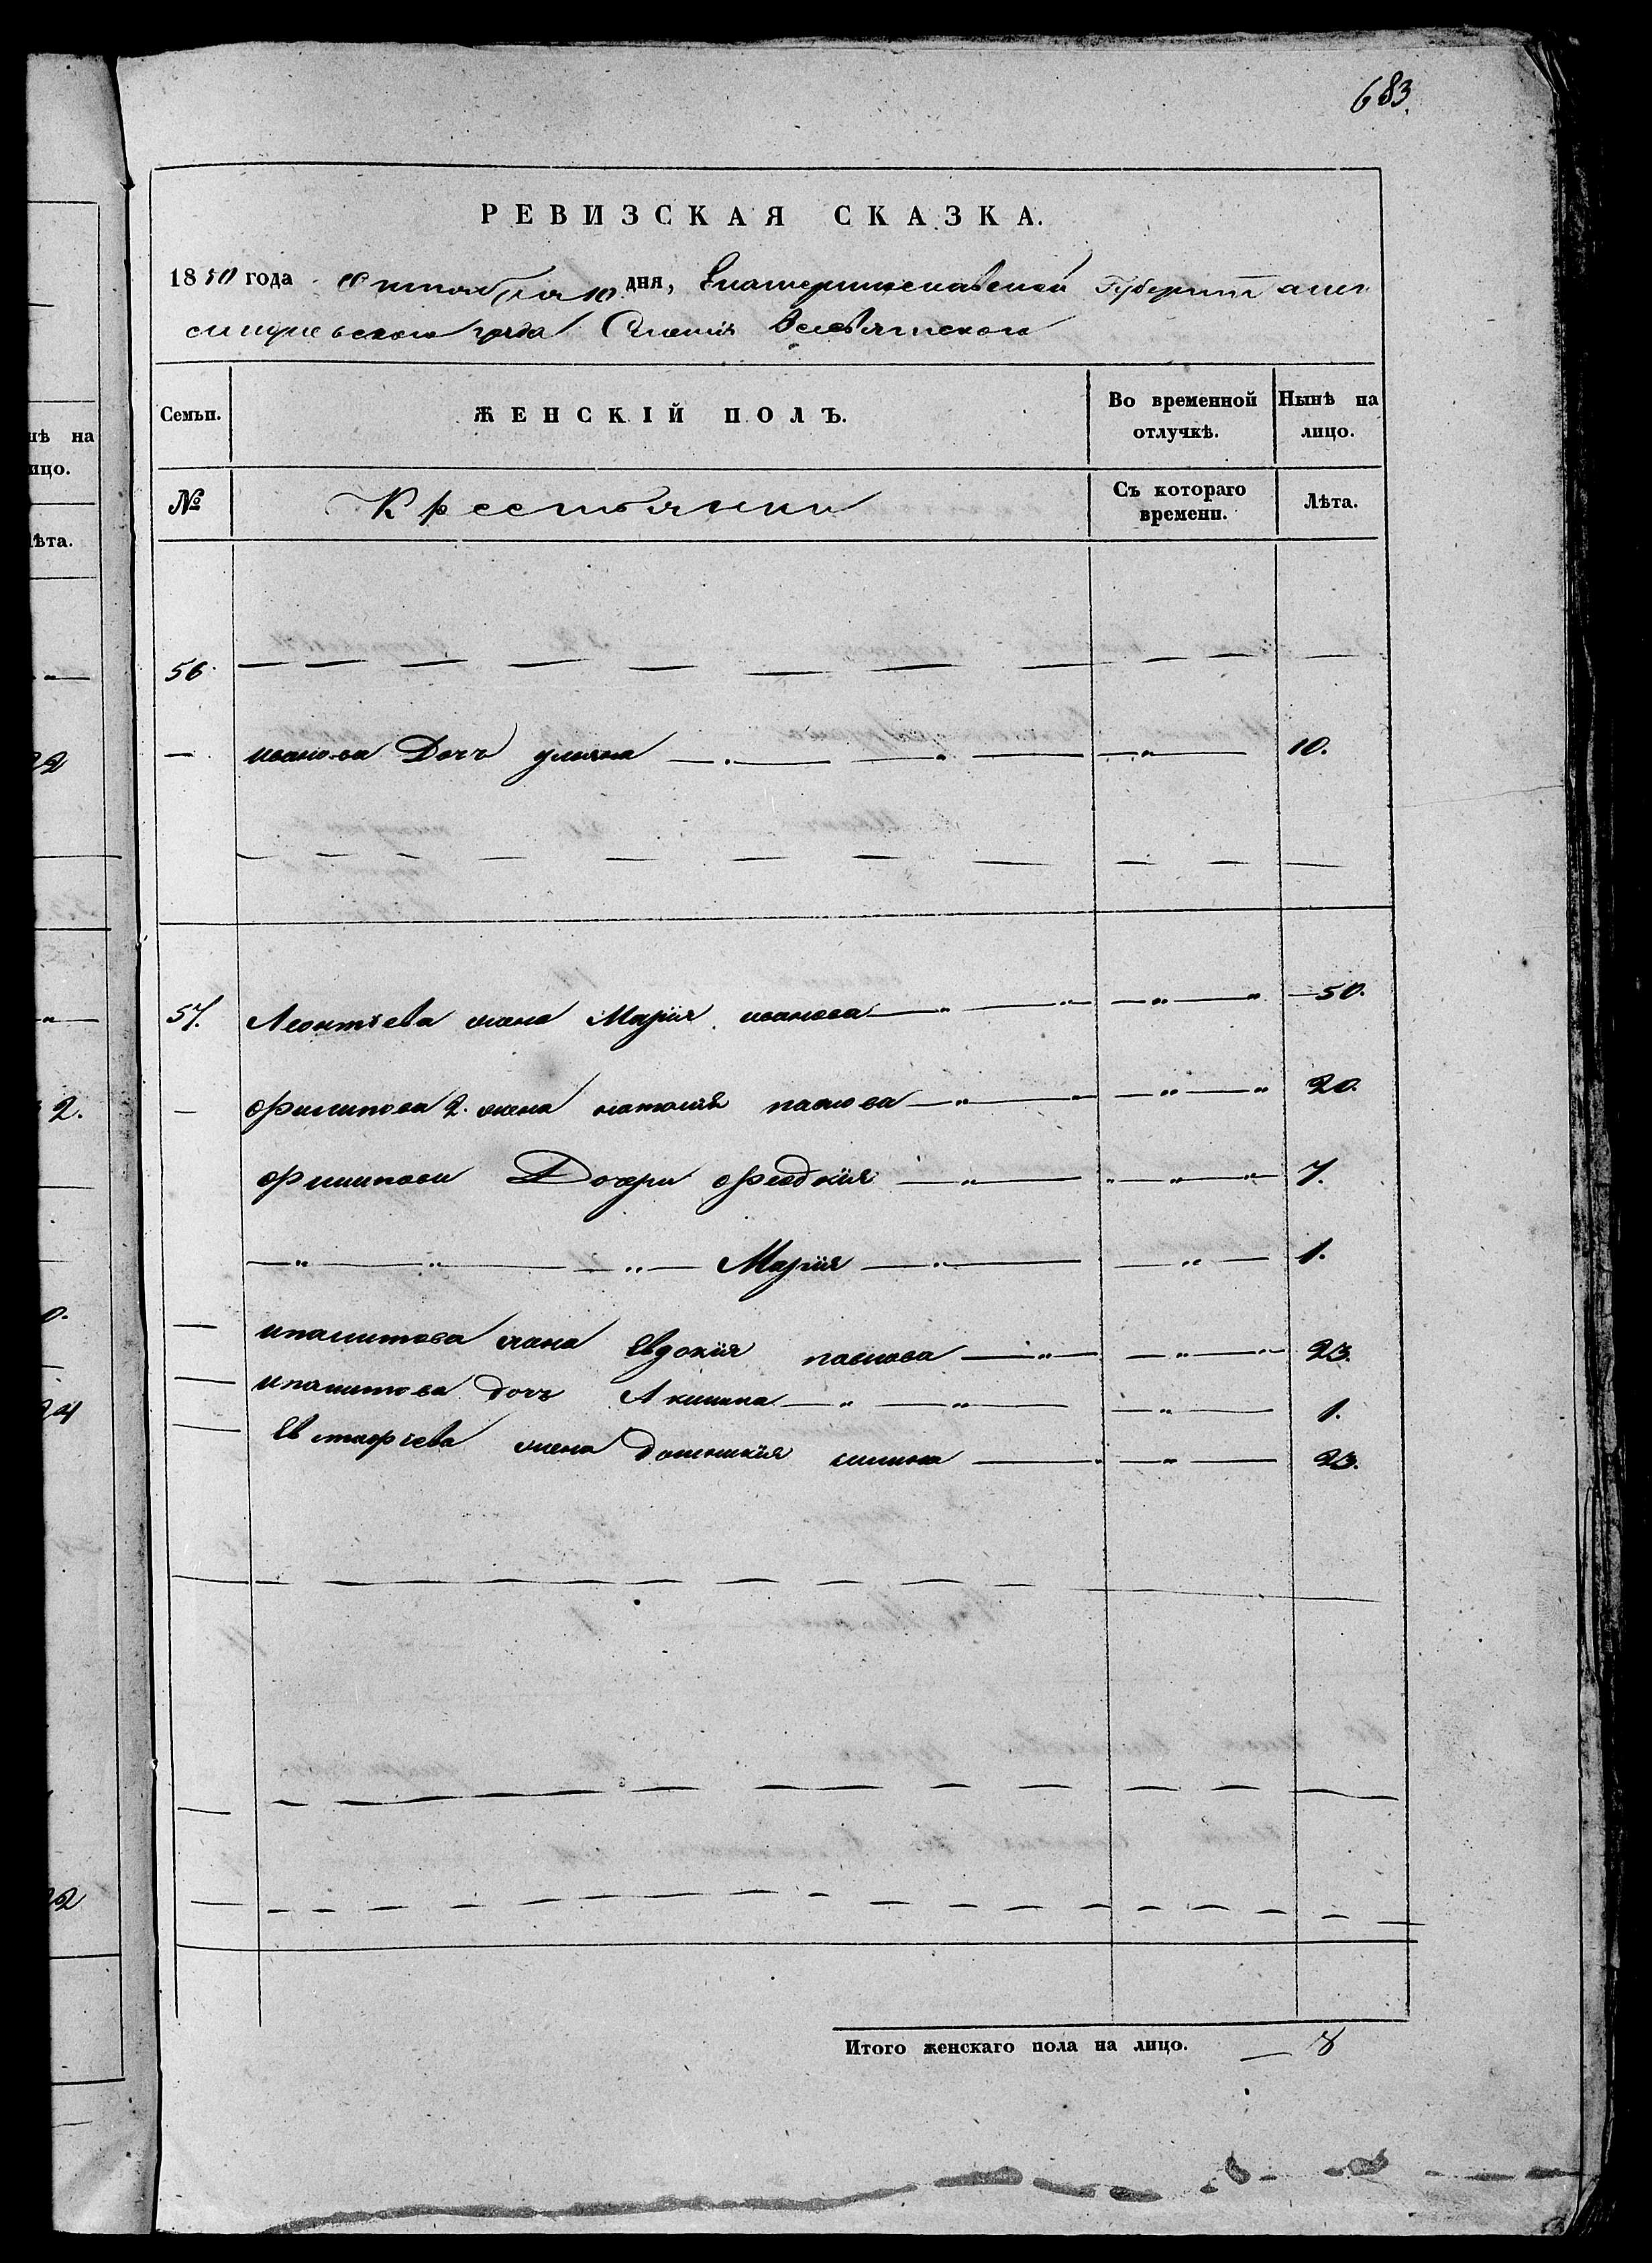 683.
РЕВИЗСКАЯ СКАЗКА.
1850 года октября 10 дня, Екатеринославской Губернии алек
сандровского уезда Селения
Семьи. ЖЕНСКІЙ ПОЛЪ. Во временной отлучкѣ. Нынѣ на лицо.
№ Крестьянки Съ котораго времени. Лѣта.
56.
— иванова Дочь улияна — " — — " — 10.
57. Леонтіева жена Марія иванова — " — — " — 50.
— Филипова 2. жена наталія павлова — " — — " — 20.
Филипови Дочери Феодосія — " — — " — 7.
— " — " — " — Марія — " — — " — 1.
— ипалитова жена Евдокія павлова — " — — " — 23.
— ипалитова дочь Акилина — " — " — — " — 1.
— Евстафіева жена домникія — " — 23.
Итого женскаго пола на лицо. — 8
нѣ на
ицо.
лѣта.
22
2.
0.
24
22